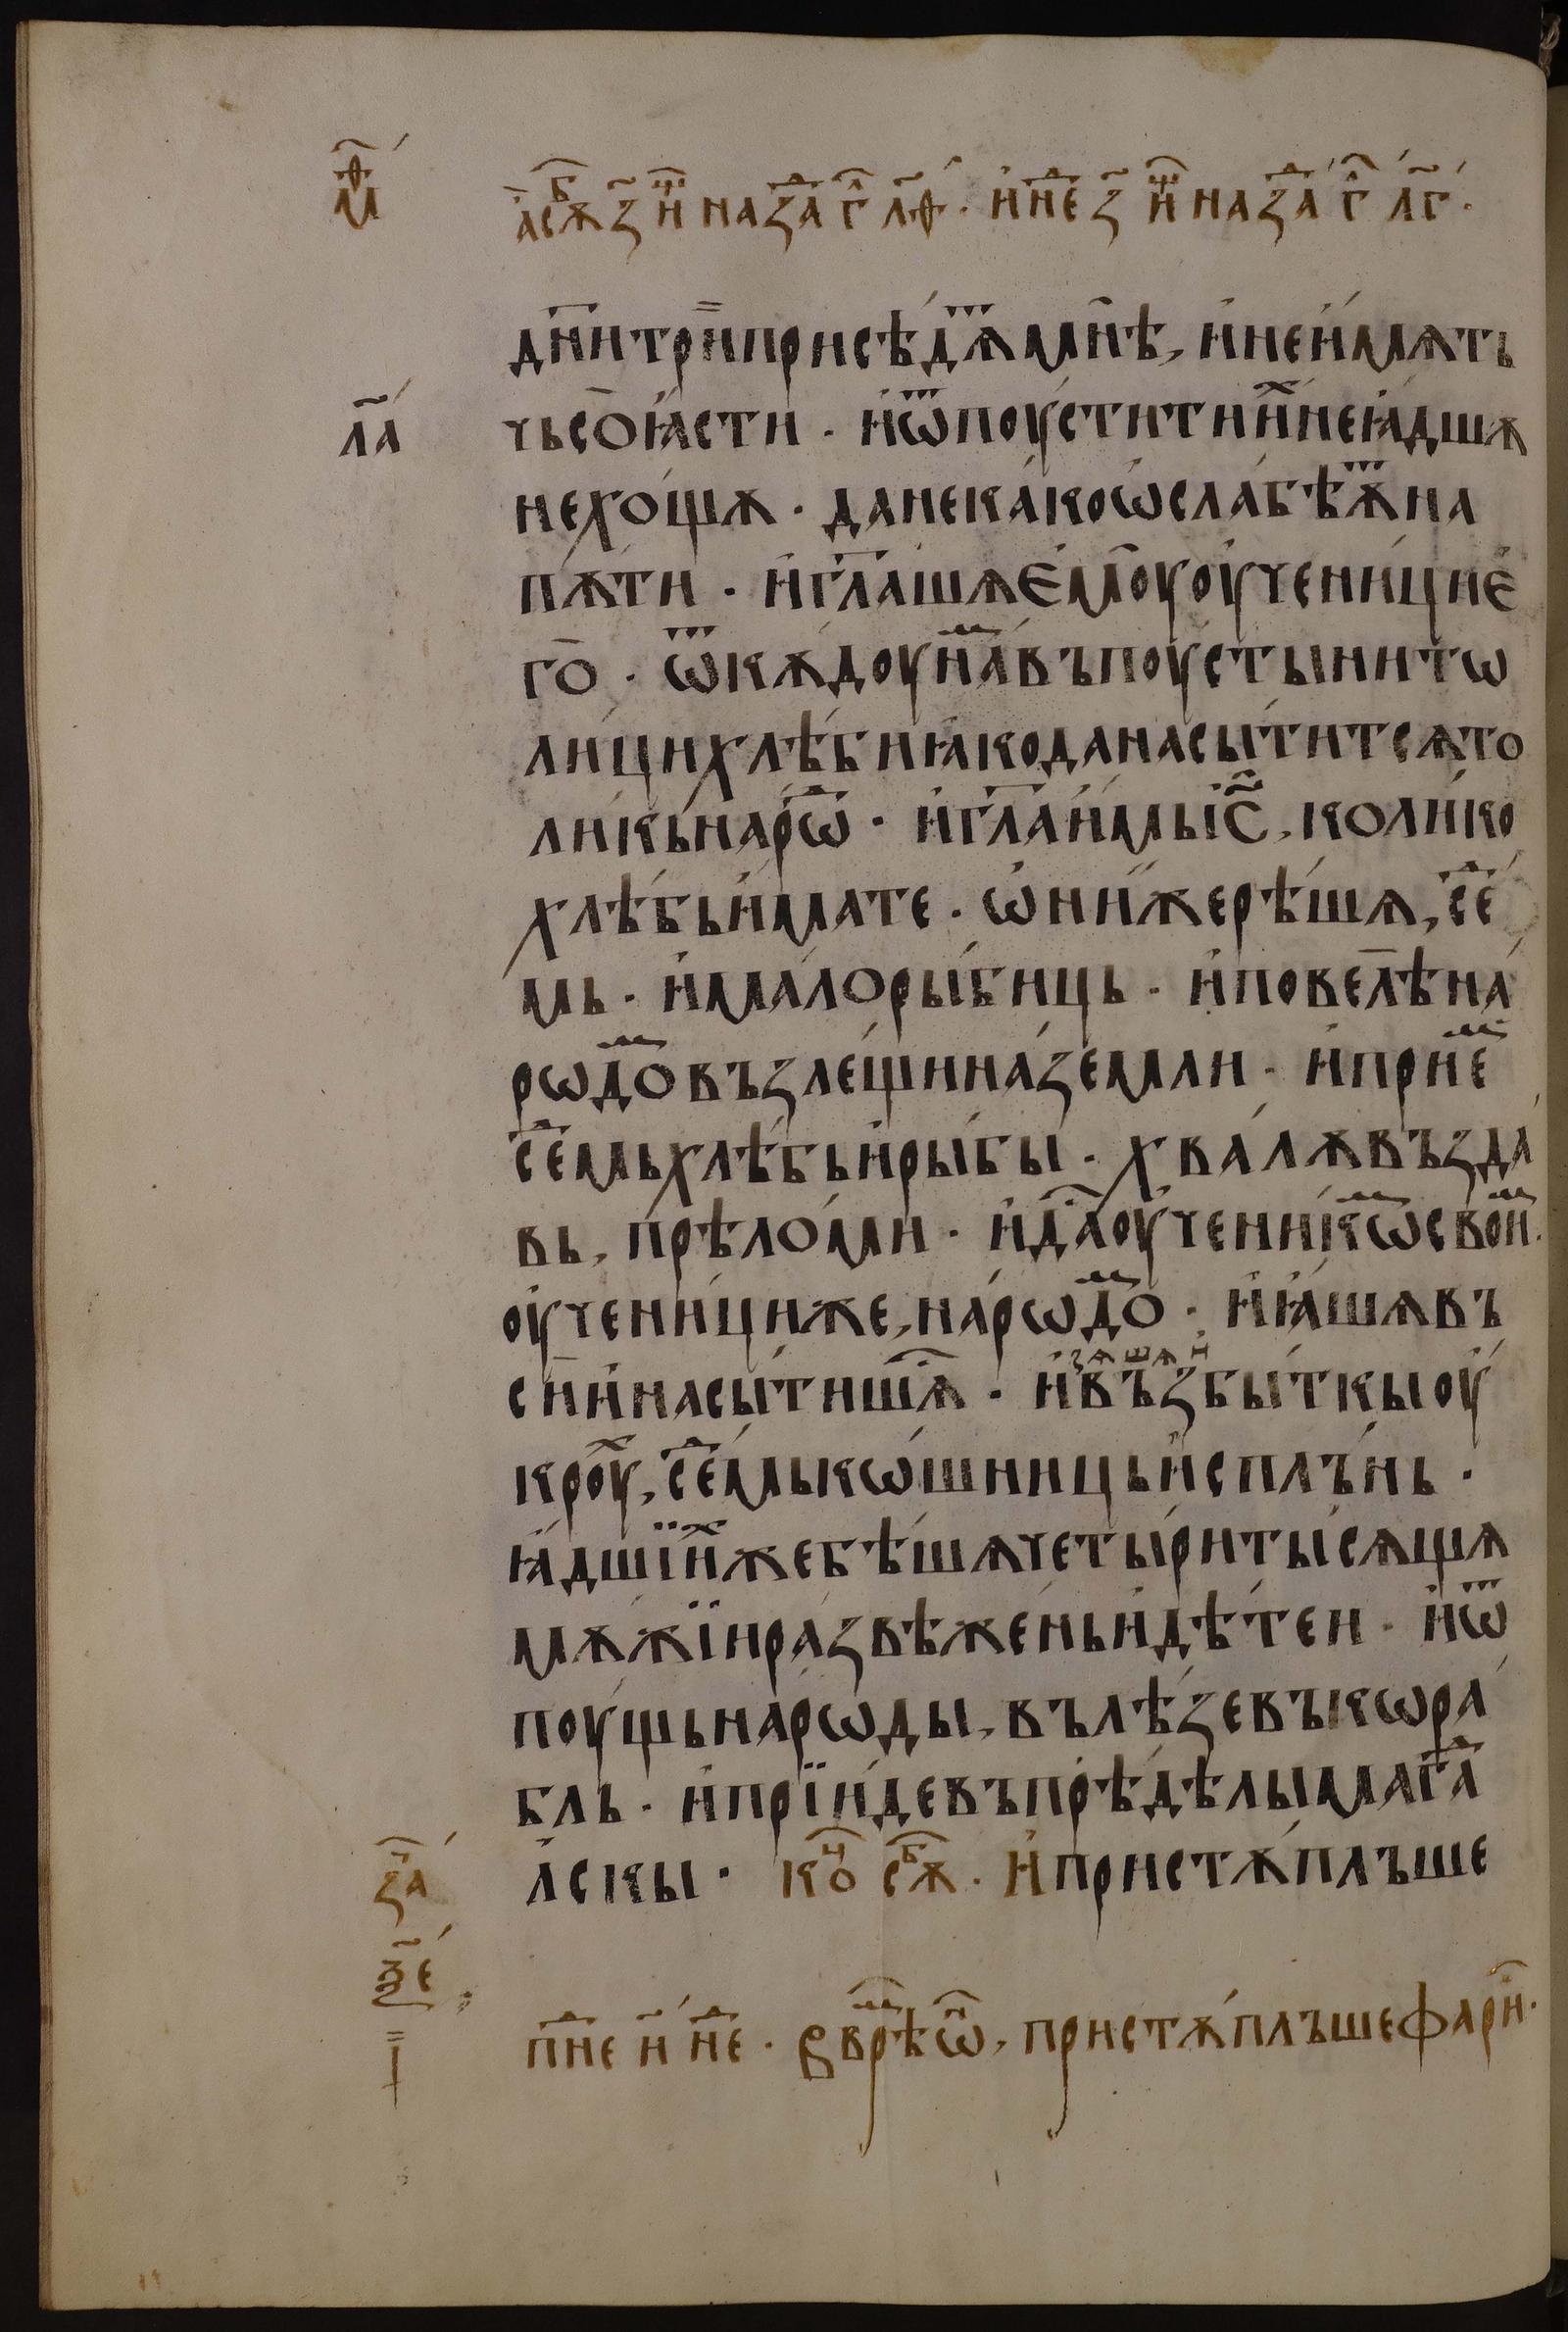 м҃ѳ
а҆ сѫⷠ҇ з҃ иⷳ҇ на заⷱ҇ г҃ л҃ѳ · и҆ неⷣ з҃ иⷳ҇ на заⷱ҇ г҃ л҃г ·
дн҃и трⷤи присѣдѧⷮ мн҃ѣ, и҆ не и҆́мѧть
л҃а
чьсо ꙗ҆́сти · и҆ ѿпоу́стити иⷯ не ꙗ҆́дшѧ
не хо́щѫ · да не ка́ко ѡ҆слабѣѧⷮ на
пѫти · и҆ гл҃ашѧ є҆мꙋ оу҆ченици є҆
го · ѿкѫ́доу наⷨ въ поу́стыни то
ли́ци хлѣ́би ꙗ҆ко да насы́тит сѧ то
ли́кь нарѡⷣ · и҆ гл҃а и҆́мь іс҃, коли́ко
хлѣ́бь и҆́мате · ѡ҆ни́ же рѣ́шѧ, сеⷣ
мь · и҆ ма́ло ры́биць · и҆ повелѣ на
рѡдоⷨ възлещи на́ земли · и҆ прие́ⷨ
сеⷣмь хлѣ́бь и҆ ры́бы · хва́лѫ възда́
вь, прѣло́ми · и҆ даⷭ҇ оу҆ченикѡⷨ своиⷨ ·
оу҆чени́ци же, наро́дѡⷨ · и҆ ꙗ҆́шѧ въ
си и҆ насы́тишѧⷭ҇ · и҆ взѧшѧ и҆збы́ткы оу
кроуⷯ, сеⷣмь кѡ́шниць и҆спль́нь ·
ꙗ҆́дшїиⷯ же бѣ́шѧ четы́ри ты́сѧщѧ
мѫ́жїи ра́звѣ же́нь и҆ дѣ́теи · и҆ ѿ
поу́щь наро́ды, вълѣ́зе въ кѡра́
бль · и҆ прїи́де въ прѣдѣ́лы магⷣа
лскы · коⷰ҇ сѫⷠ҇ · И҆ пристѫ́пльше
заⷱ҇
ѯ҃е
пнⷣе и҃ неⷣ · Въ врⷨѣ ѡⷩ҇, пристѫ́пльше фариⷭ҇ ·